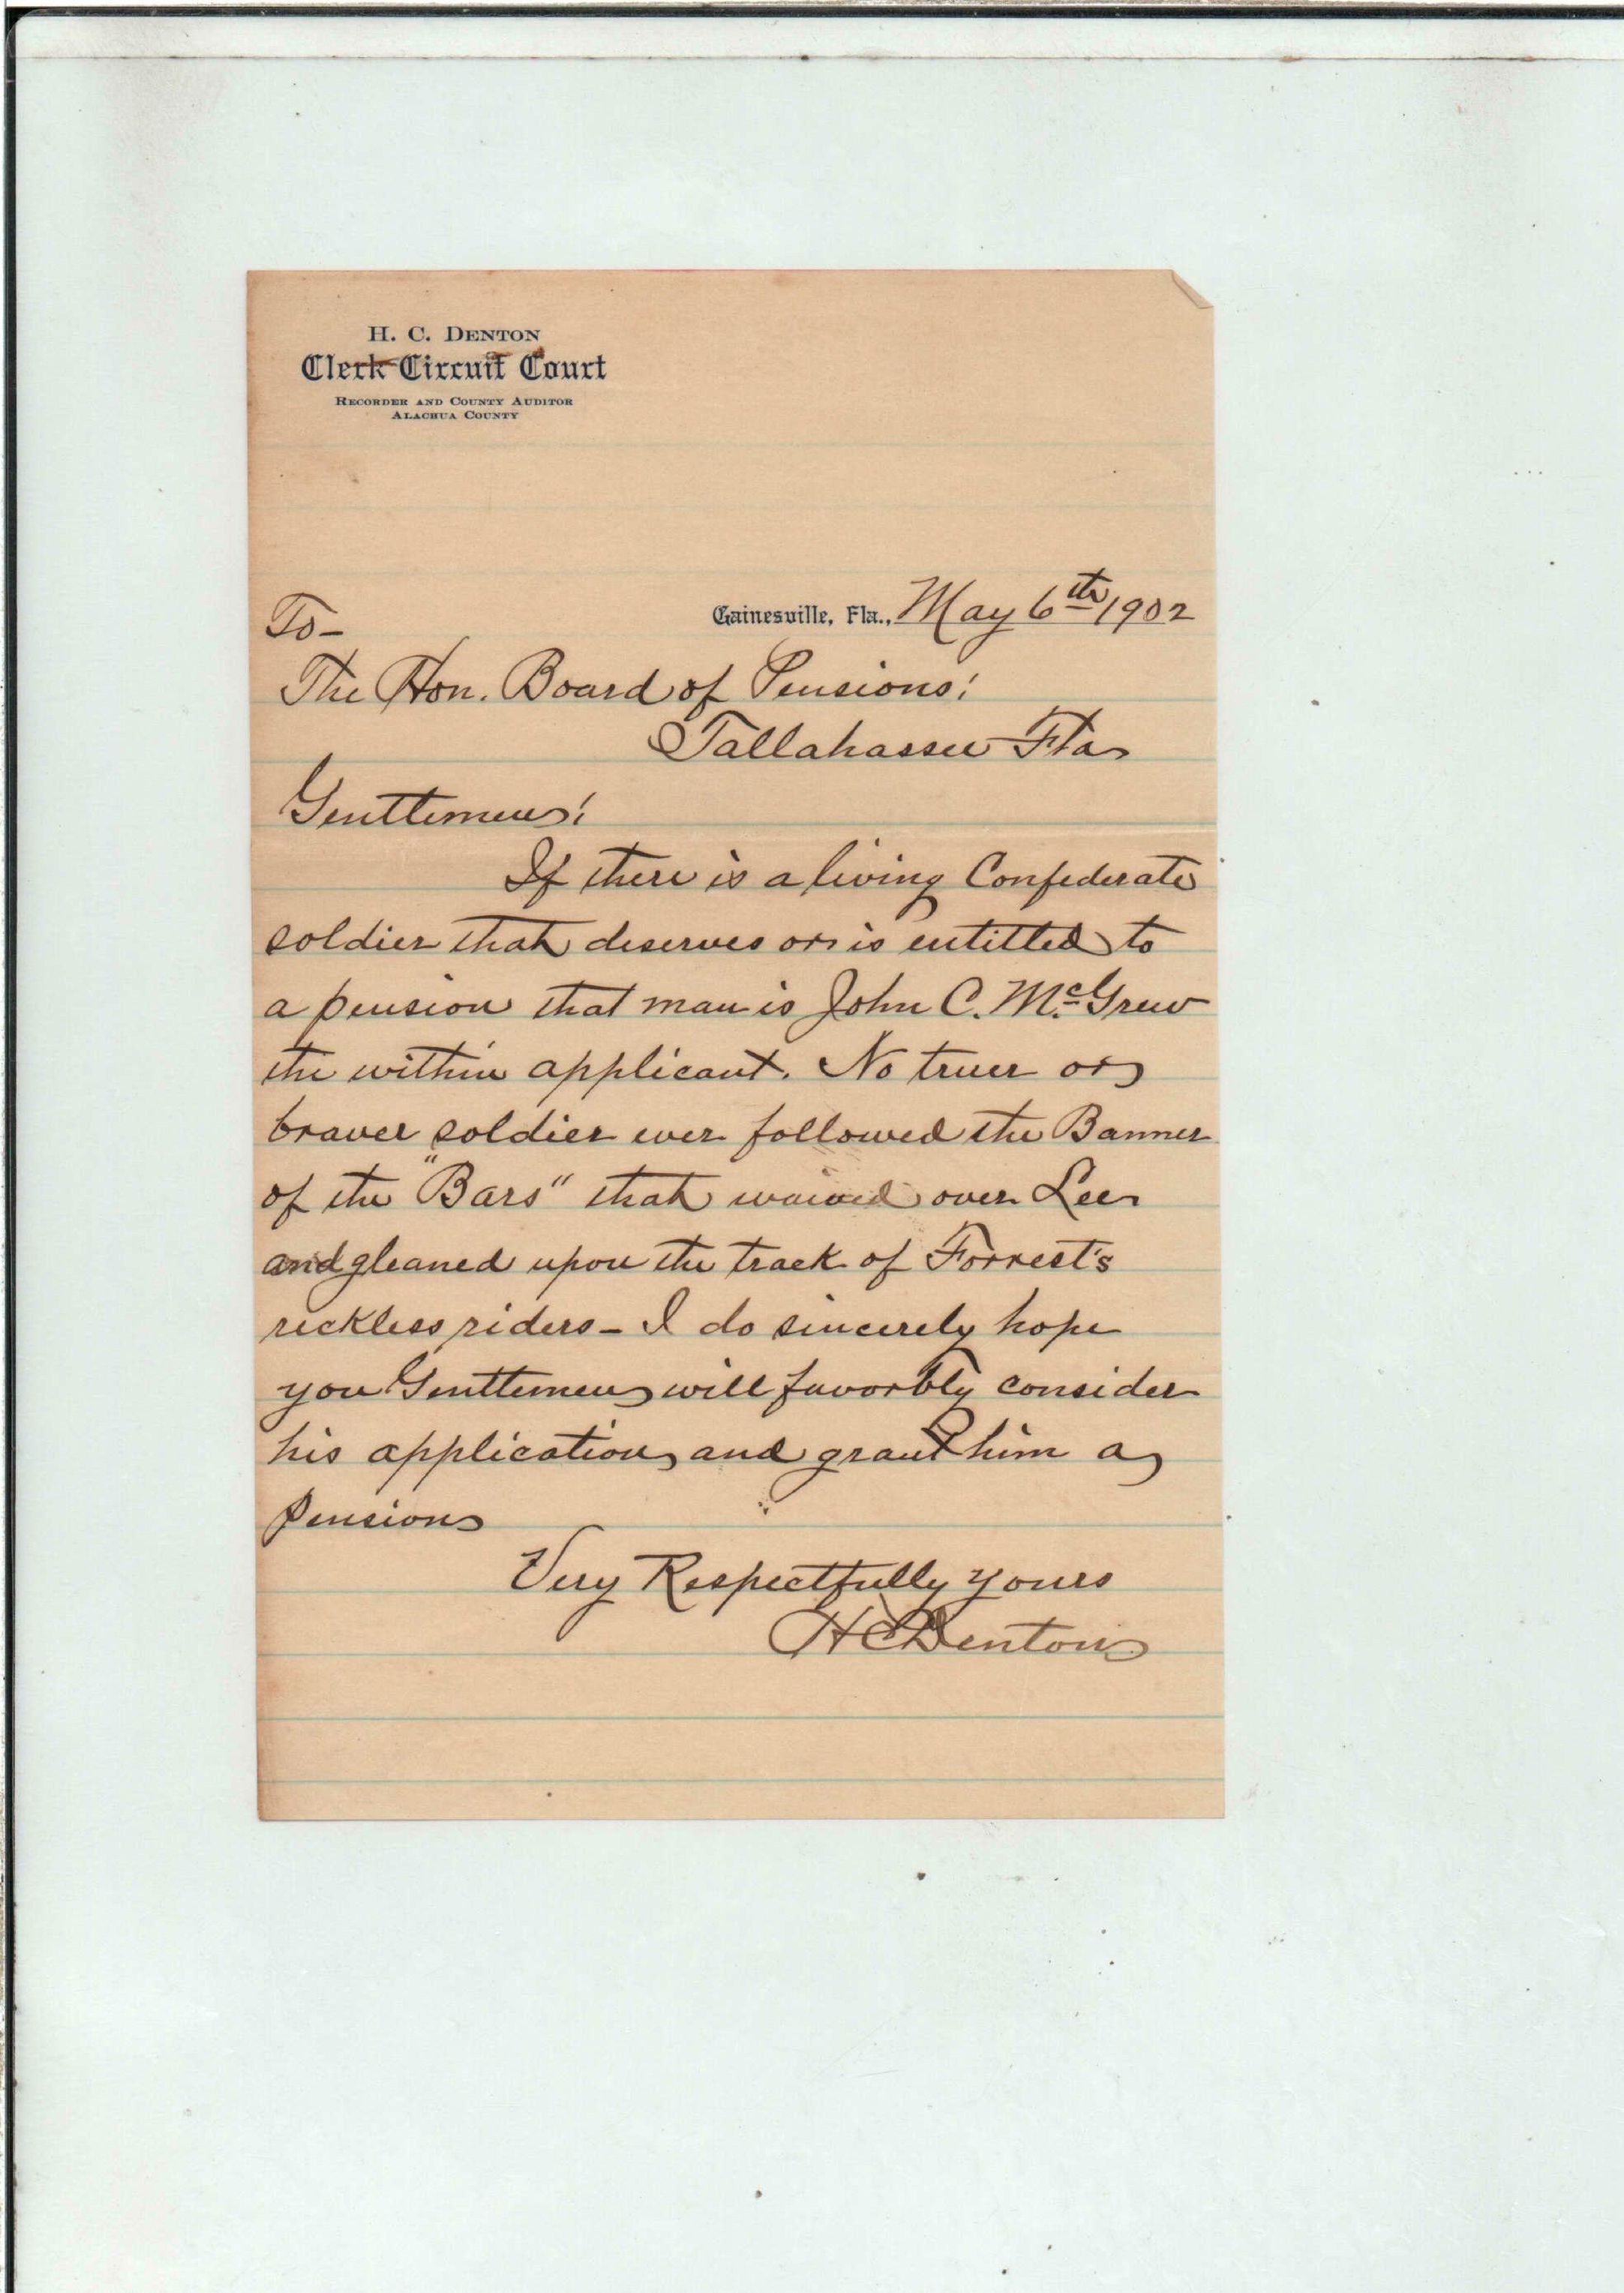 H. C. Denton
Clerk Circuit Court
Recorder and County Auditor
Alachua County
Gainesville, Fla., May 6th 1902
To-
The Hon. Board of Pensions!
Tallahassee Fla
Gentlemen!
If there is a living Confederate
soldier that deserves or is entitled to
a pension that man is John C. McGrew
the within applicant. No truer or
braver soldier ever followed the Banner
of the "Bars" that waived over Lee
and gleaned upon the track of Forrest's
reckless riders - I do sincerely hope
you Gentlemen will favorbly consider
his application and grant him a
Pension
Very Respectfully yours
H C Denton